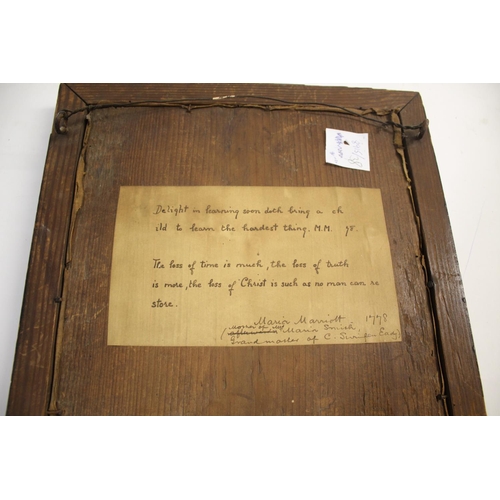 Delight in learning soon doth bring a ch
ild to learn the hardest thing. M.M. 98.
The loss of time is much, the loss of truth
is more, the loss of Christ is such as no man can re
store.
Maria Marriott
Maria Smith
Grandmother of C.